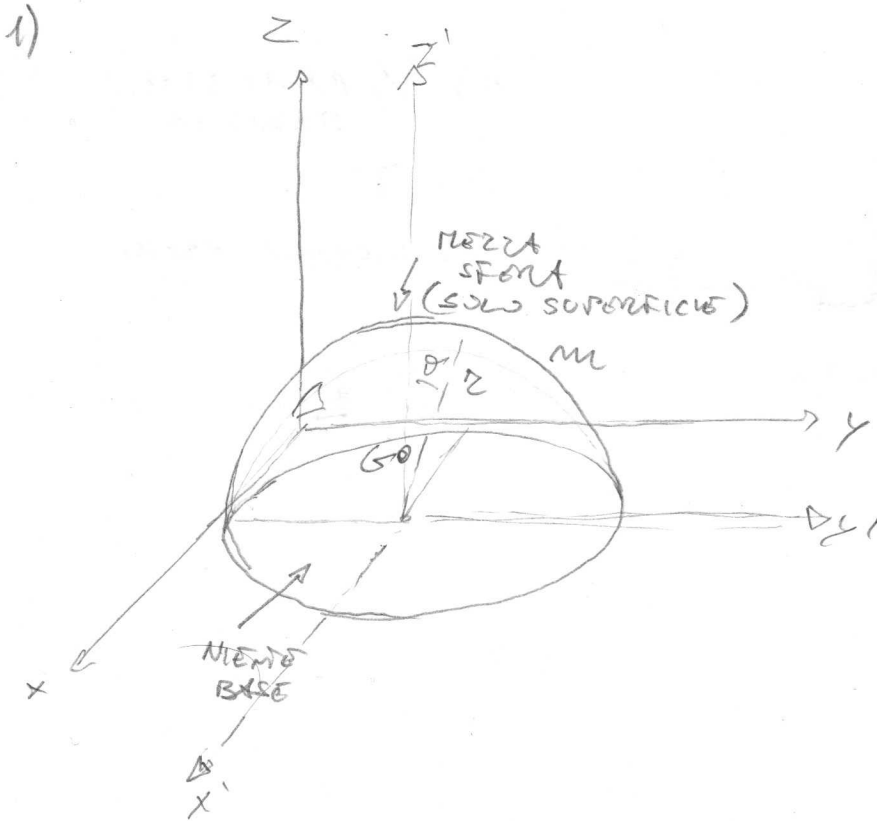 1)
Z
Z'
MEZZA
SFERA
(SOLO SUPERFICIE)
m
θ r
y
θ
y'
NIENTE
BASE
x
x'